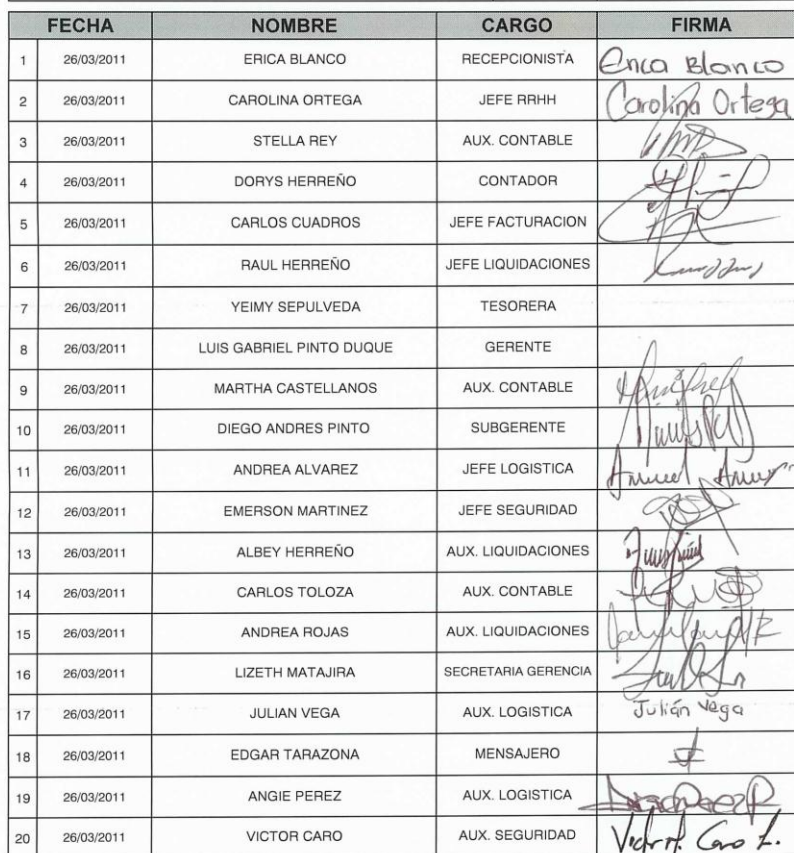 FECHA NOMBRE CARGO FIRMA
1 26/03/2011 ERICA BLANCO RECEPCIONISTA Erica Blanco
2 26/03/2011 CAROLINA ORTEGA JEFE RRHH Carolina Ortega
3 26/03/2011 STELLA REY AUX. CONTABLE
4 26/03/2011 DORYS HERREÑO CONTADOR
5 26/03/2011 CARLOS CUADROS JEFE FACTURACION
6 26/03/2011 RAUL HERREÑO JEFE LIQUIDACIONES
7 26/03/2011 YEIMY SEPULVEDA TESORERA
8 26/03/2011 LUIS GABRIEL PINTO DUQUE GERENTE
9 26/03/2011 MARTHA CASTELLANOS AUX. CONTABLE
10 26/03/2011 DIEGO ANDRES PINTO SUBGERENTE
11 26/03/2011 ANDREA ALVAREZ JEFE LOGISTICA
12 26/03/2011 EMERSON MARTINEZ JEFE SEGURIDAD
13 26/03/2011 ALBEY HERREÑO AUX. LIQUIDACIONES
14 26/03/2011 CARLOS TOLOZA AUX. CONTABLE
15 26/03/2011 ANDREA ROJAS AUX. LIQUIDACIONES
16 26/03/2011 LIZETH MATAJIRA SECRETARIA GERENCIA
17 26/03/2011 JULIAN VEGA AUX. LOGISTICA Julián Vega
18 26/03/2011 EDGAR TARAZONA MENSAJERO
19 26/03/2011 ANGIE PEREZ AUX. LOGISTICA
20 26/03/2011 VICTOR CARO AUX. SEGURIDAD Victor M. Caro L.